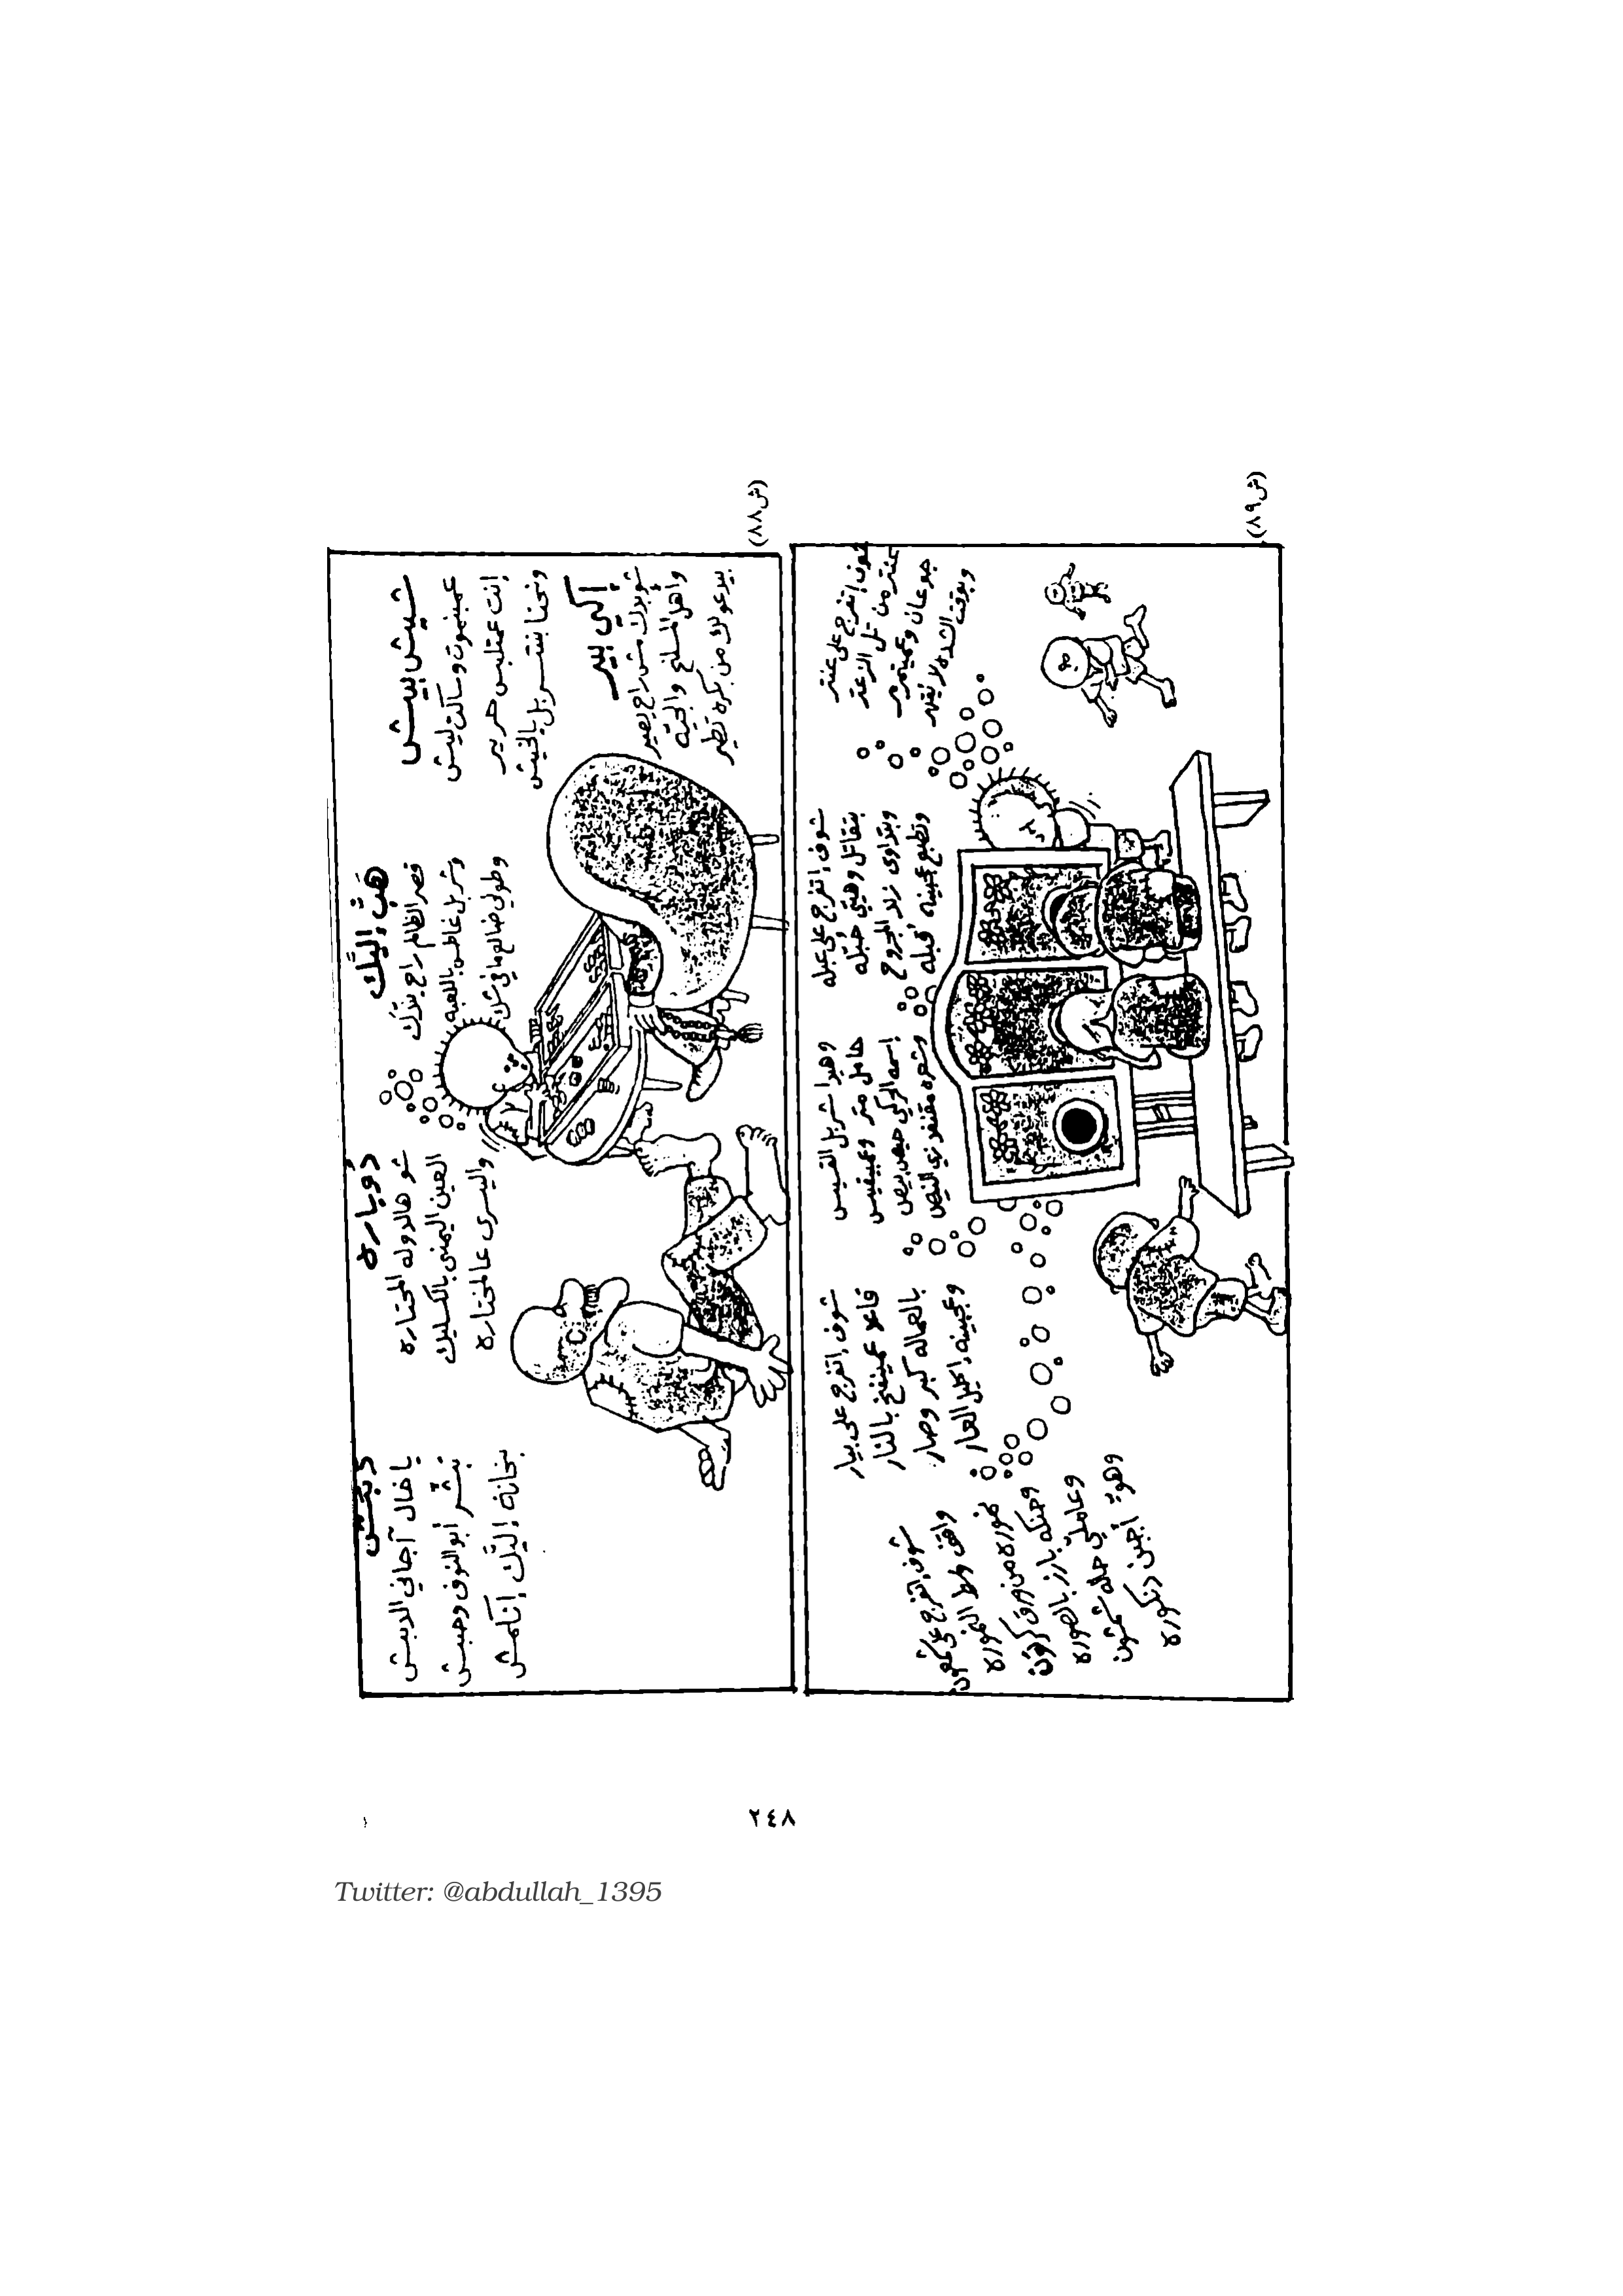 (ش٨٨)
شيش بيش
عمبنموت وساكت ليش
إنت عمتلبس حرير
ونحنا بنتسربل بالخيش
إكي بير
شو بدك مش راح يصير
وأهل المسلخ والحيّه
بيدعولك من بكره تطير
هَبّ إليَك
قصر الظالم راح بندَك
وشربل غاطس باللعبه
وطولي ضايع ما في شك
دُوباره
شو هالدوله المحتاره
العين اليمنى بالكسليك
واليسرى عالمختاره
دبش
يا خال آجاني الدبش
بشّر أبو النوف وحبش
بخانة إليَك إنكمش
(ش٨٩)
شوف إتفرج على عنتر
عنتر من تل الزعتر
جوعان وعميتمرمر
وبوقت الشده لا يُقهر
شوف إتفرج على عبله
بتقاتل وهيّي حبله
وبتداوي زند المجروح
وتطبع عجبينه قبله
وهيدا شربل القسيس
حامل متر وعمبيقيس
إسمه الحركي حيص بيص
وشعره مقنفد زي النيص
شوف إتفرج على بيار
قاعد عمينفخ بالنار
بالعماله كبر وصار
وعجبينه إكليل العار
شوف إتفرج على شمعون
واقف وسط الغوره
وحنكه بارز بالصوره
وعاملّي حاله شمشون
وهوّ أجبن دنكوره
٢٤٨
Twitter: @abdullah_1395